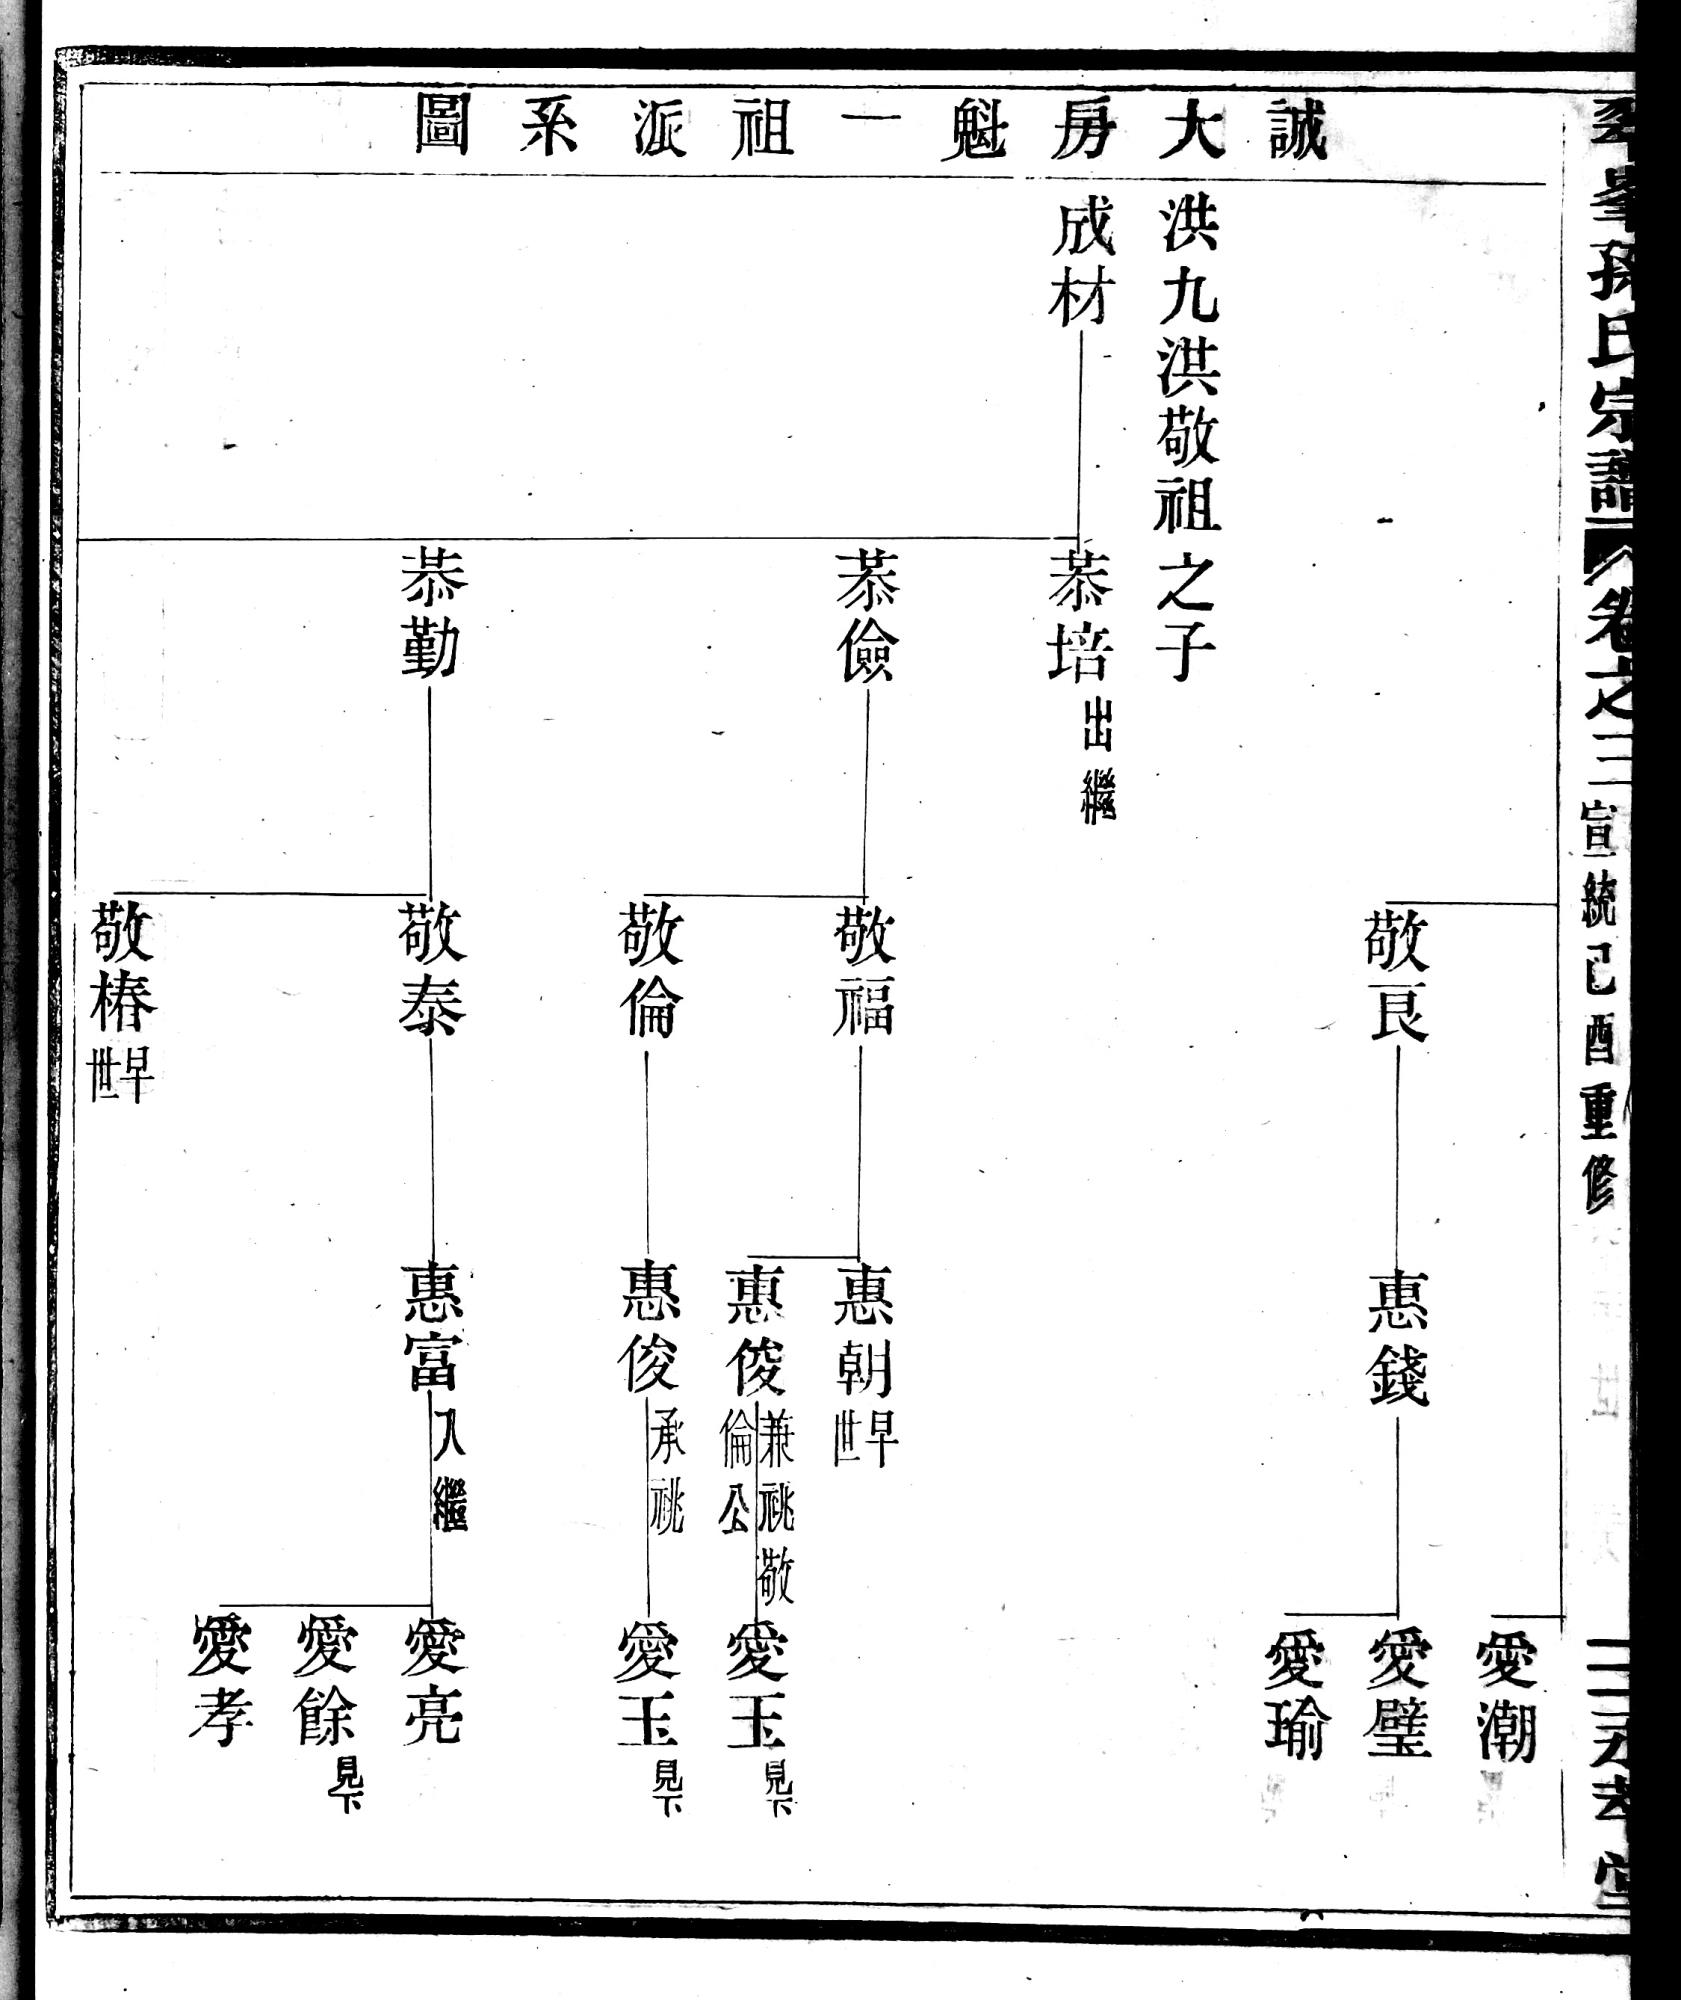 誠大房魁一祖派系圖
孫氏宗譜
卷之三
宣統己酉重修
敬良
惠錢
愛潮
愛璧
愛瑜
洪九洪敬祖之子
成材
恭培
出繼
恭儉
敬福
惠朝
早世
惠俊
兼祧敬
倫公
愛玉
見下
敬倫
惠俊
承祧
愛玉
見下
恭勤
敬泰
惠富
入繼
愛亮
愛餘
見下
愛孝
敬椿
早世